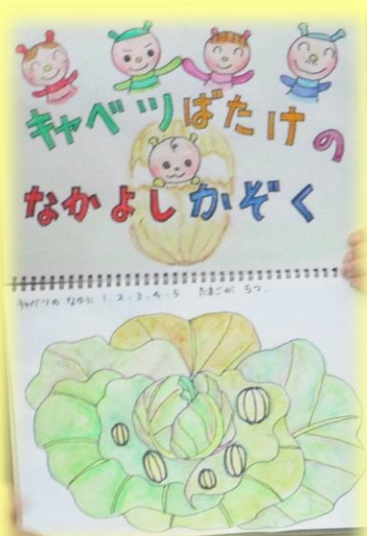 キャベツばたけの
なかよしかぞく
キャベツの なかに 1.2.3.4.5 たまごが 5つ.